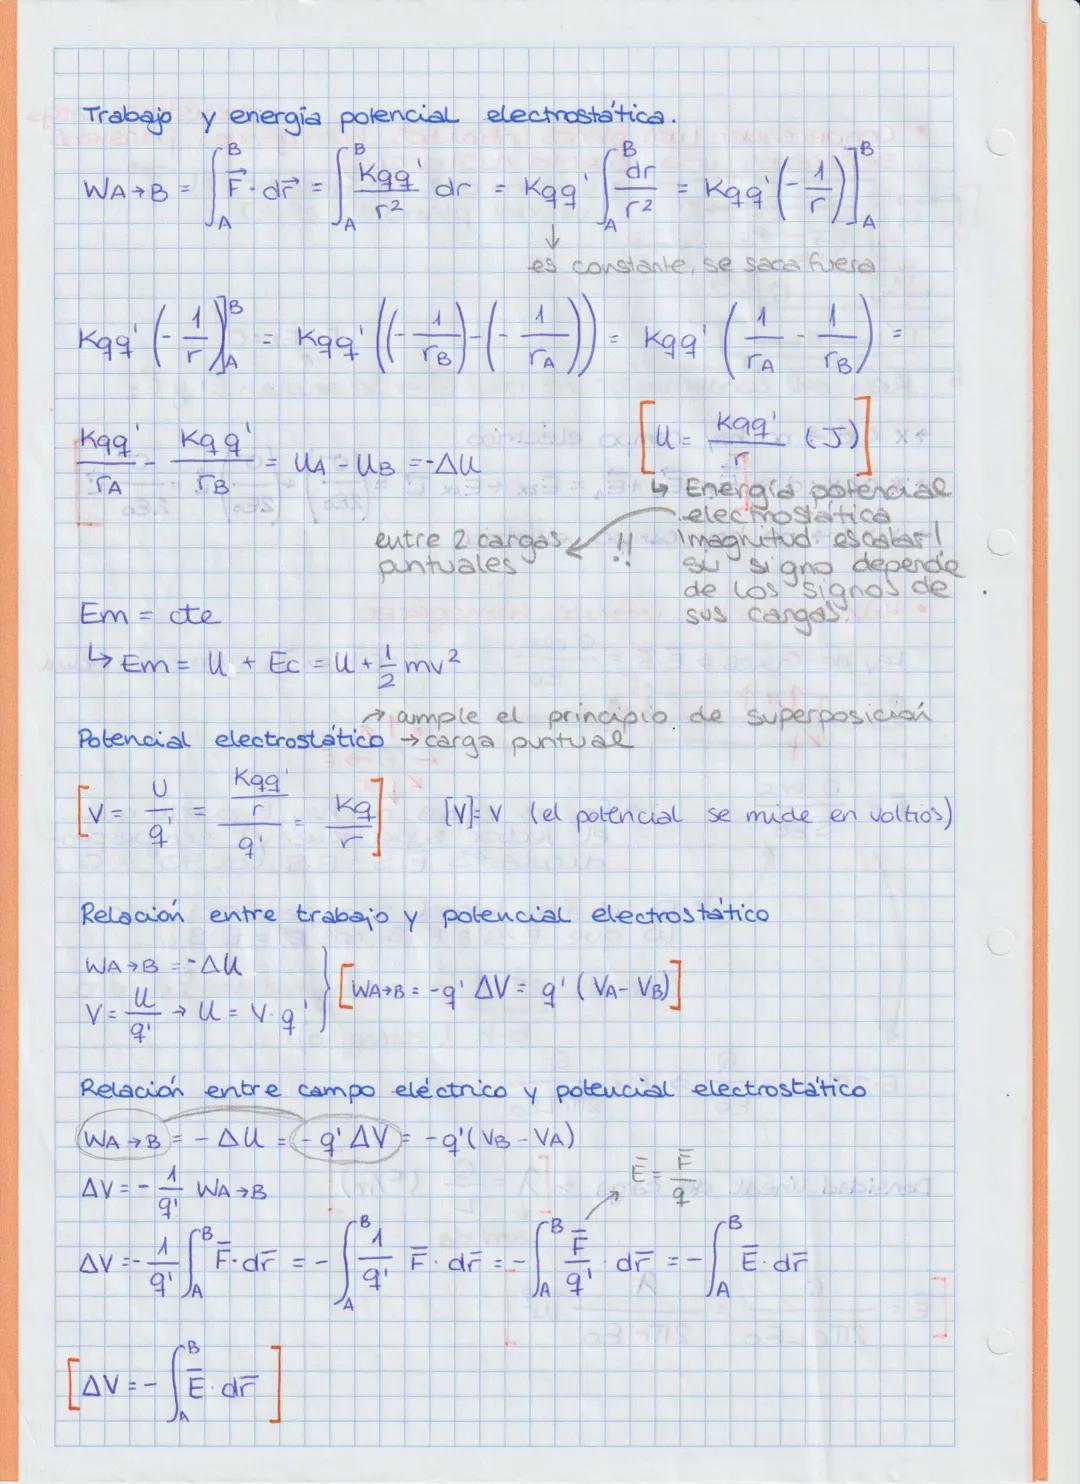 Trabajo y energía potencial electrostática.
WA→B = ∫_A^B F⃗·dr⃗ = ∫_A^B Kqq'/r² dr = Kqq' ∫_A^B dr/r² = Kqq' (-1/r)]_A^B
↓
es constante, se saca fuera
Kqq' (-1/r)]_A^B = Kqq' ((-1/rB)-(-1/rA)) = Kqq' (1/rA - 1/rB) =
Kqq'/rA - Kqq'/rB = UA - UB = -ΔU
[U = Kqq'/r (J)]
↳ Energía potencial
electrostática
entre 2 cargas puntuales ← !!
¡magnitud escalar!
su signo depende
de los signos de
sus cargas.
Em = cte
↳ Em = U + Ec = U + 1/2 mv²
→ cumple el principio de superposición
Potencial electrostático → carga puntual
[V = U/q' = (Kqq'/r)/q' = Kq/r] [V]=V (el potencial se mide en voltios)
Relación entre trabajo y potencial electrostático
WA→B = -ΔU
V = U/q' → U = V·q' } [WA→B = -q' ΔV = q' (VA-VB)]
Relación entre campo eléctrico y potencial electrostático
WA→B = -ΔU = -q' ΔV = -q'(VB - VA)
ΔV = - 1/q' WA→B
E̅ = F̅/q
ΔV = - 1/q' ∫_A^B F̅·dr̅ = - ∫_A^B 1/q' F̅·dr̅ = - ∫_A^B F̅/q' · dr̅ = - ∫_A^B E̅·dr̅
[ΔV = - ∫_A^B E̅·dr̅]